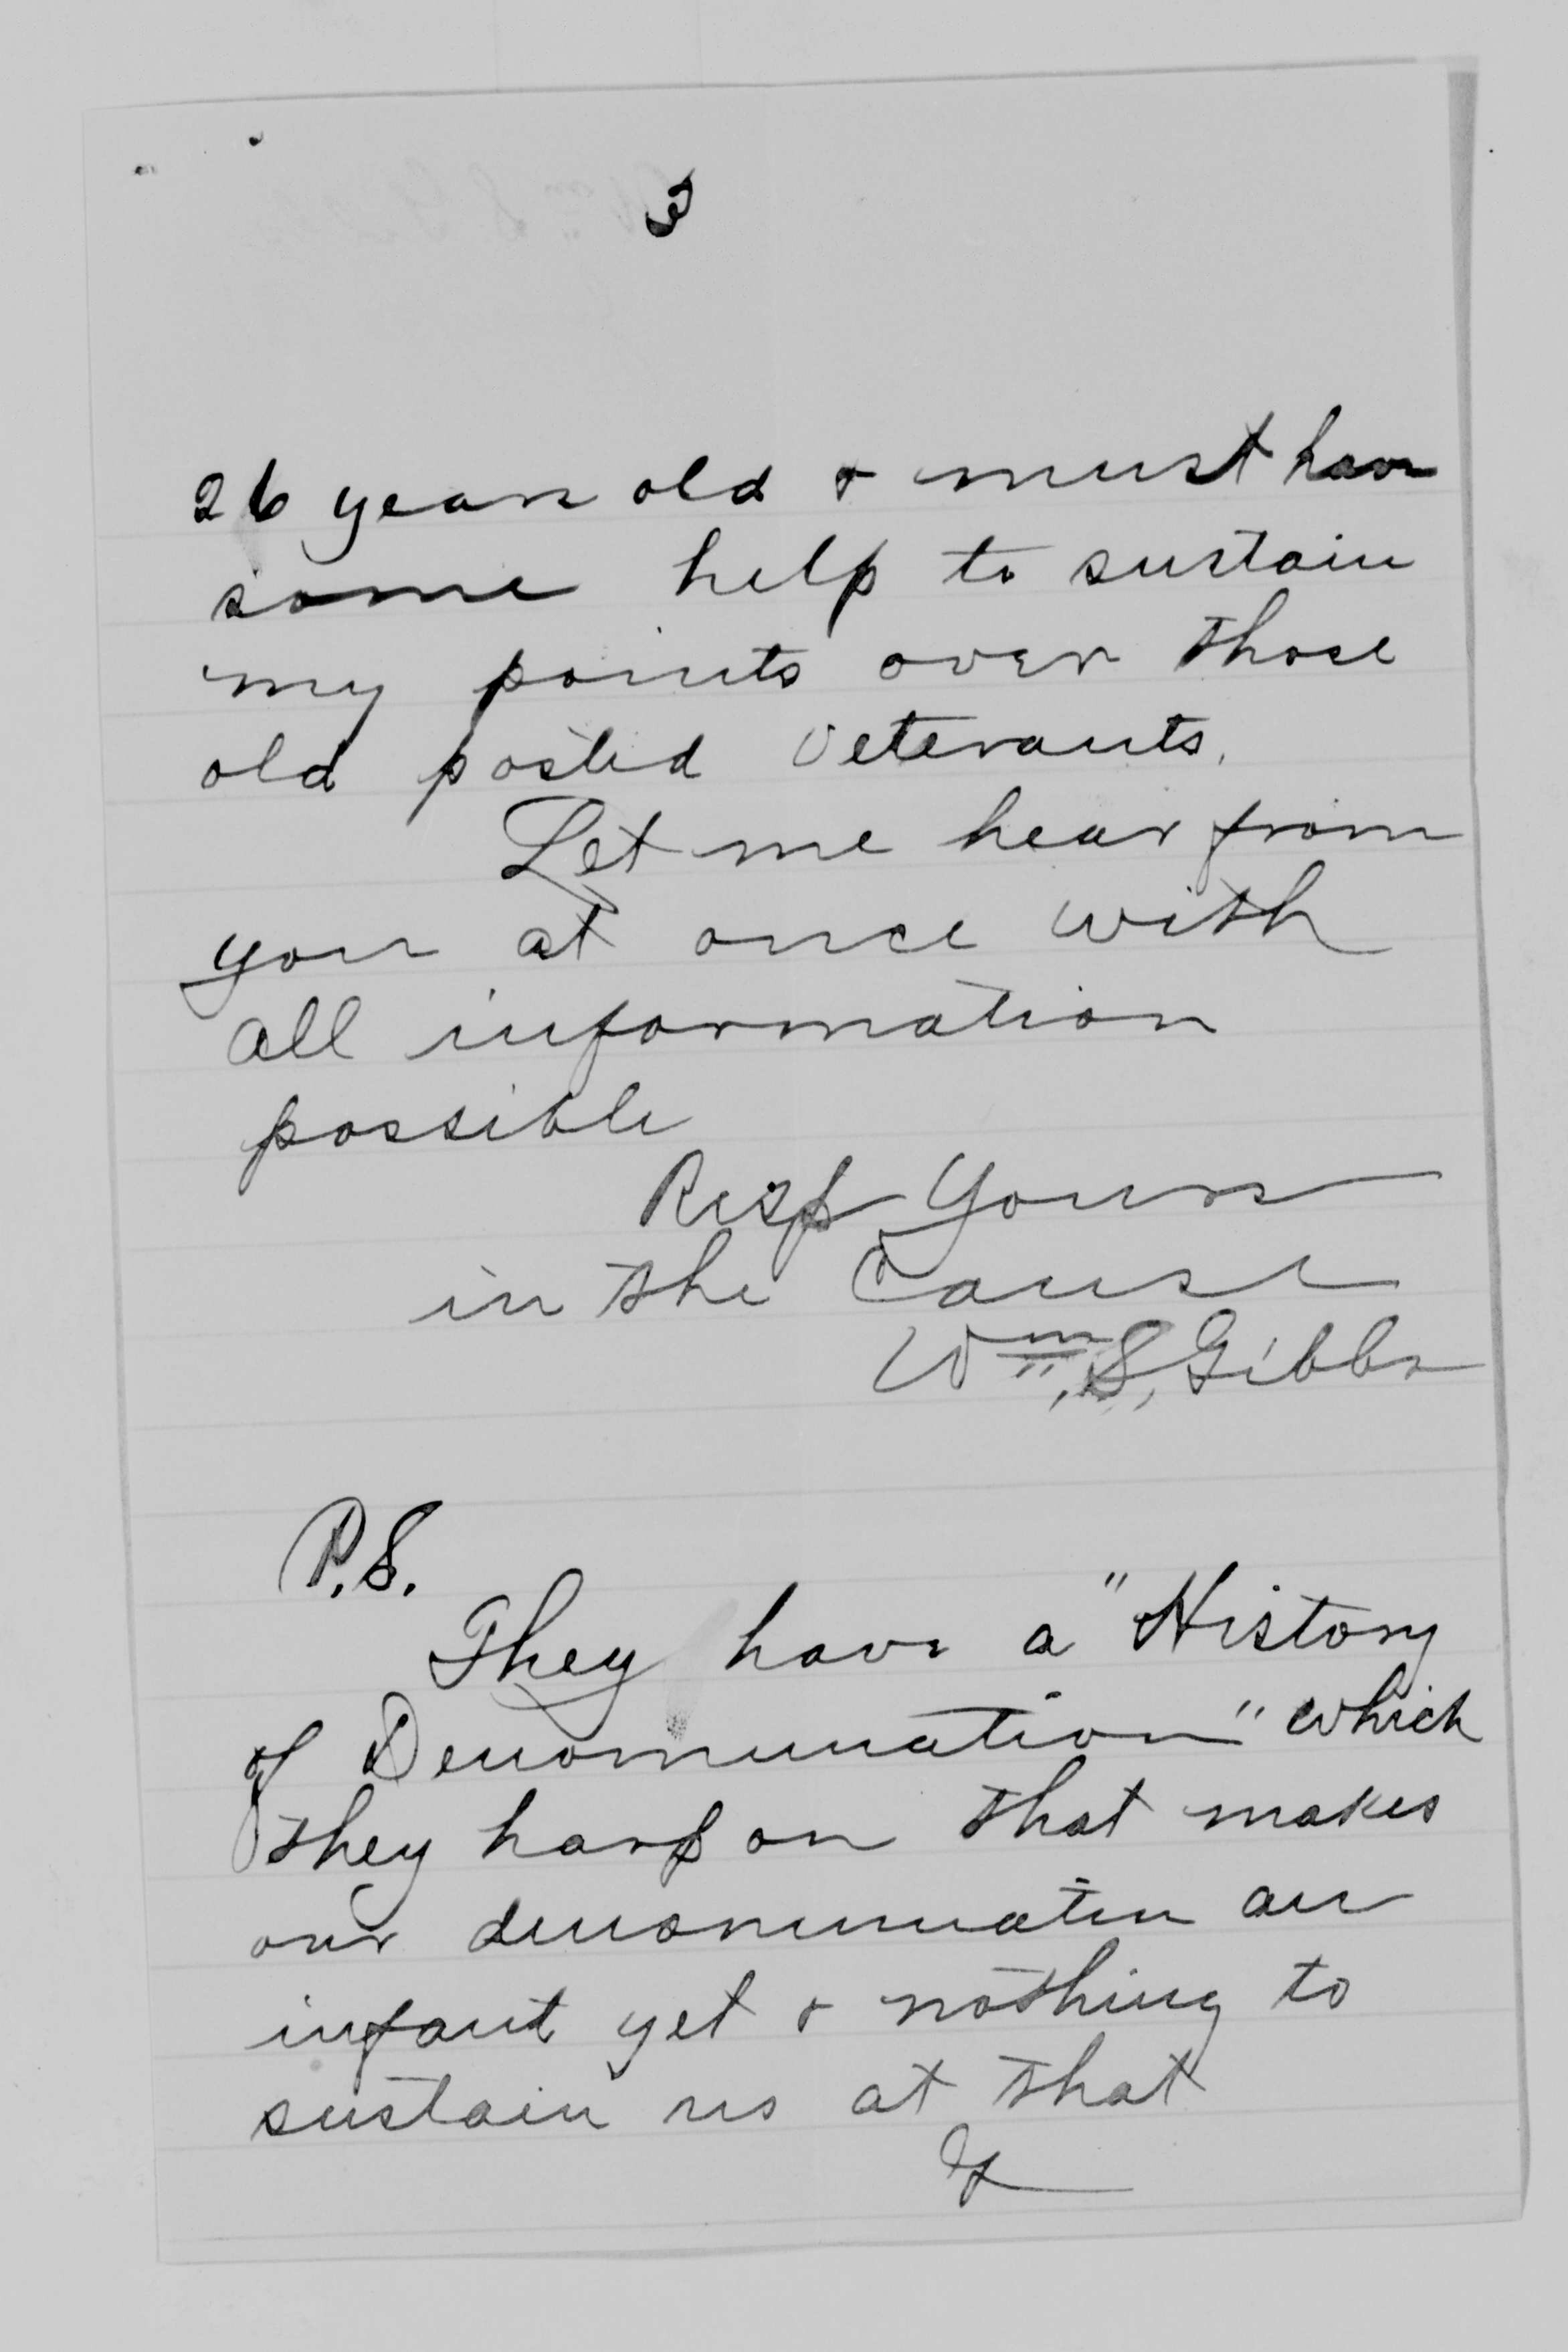 3
26 years old & must have
some help to sustain
my points over those
old posted veterants.
Let me hear from
you at once with
all information
possible
Resp Yours
in the Cause
Wm. S. Gibbs
P.S.
They have a "History
of Denomination" which
they harp on that makes
our denomination an
infant yet & nothing to
sustain us at that
G